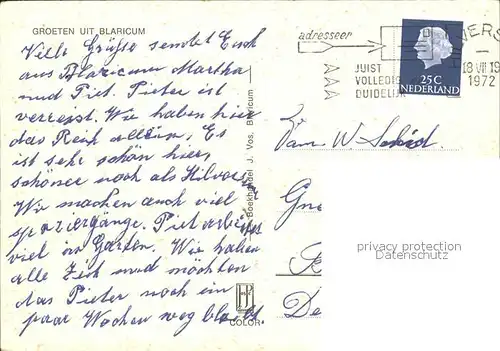 GROETEN UIT BLARICUM
Viele Grüße sendet Euch
aus Blaricum Martha
und Piet. Pieter ist
verreist. Wir haben hier
das Reich allein, Es
ist sehr schön hier,
schöner noch als Hilvers.
Wir machen auch viel
spaziergänge. Piet arbeitet
viel im Garten. Wir haben
alle Zeit und möchten
das Pieter noch ein
paar Wochen weg bleibt.
Boekhandel J. Vos, Blaricum
COLOR
adresseer
JUIST
VOLLEDIG
DUIDELIJK
18 VII 19
1972
25C
NEDERLAND
Fam W
privacy protection
Datenschutz
De